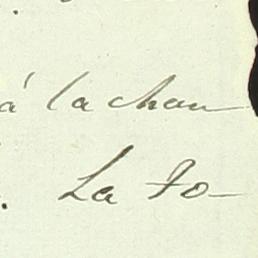 à la chan
. La Jo-